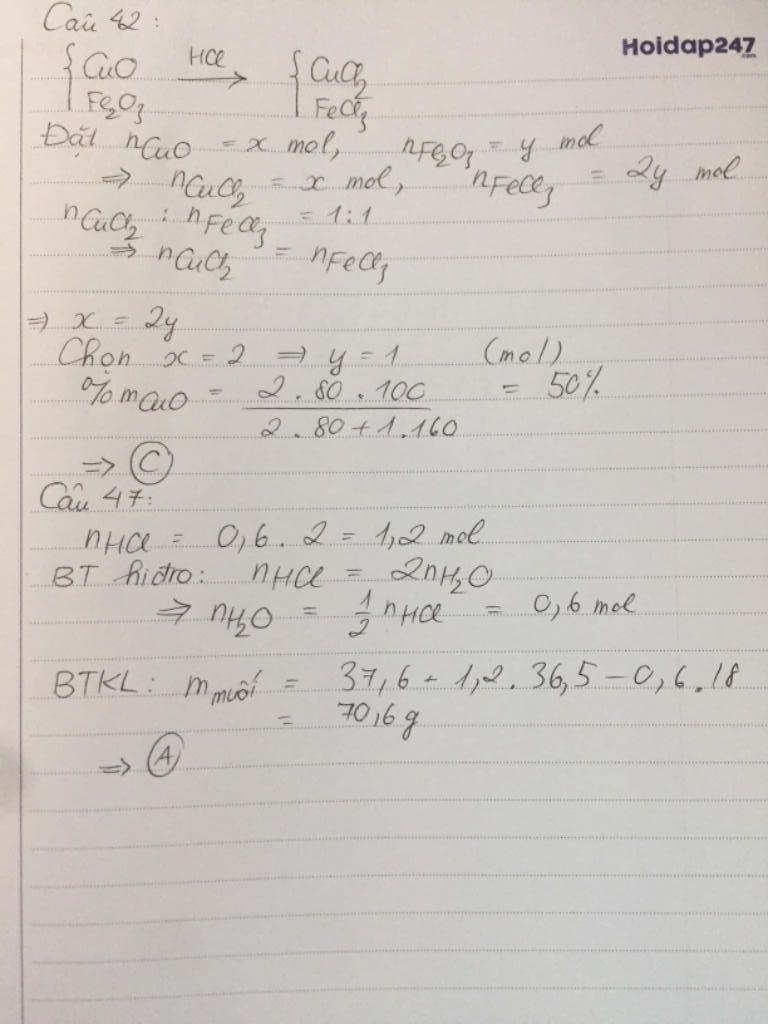 Câu 42:
Hoidap247.com
{ CuO  HCl →  { CuCl₂
Fe₂O₃  FeCl₃
Đặt nCuO = x mol, nFe₂O₃ = y mol
⇒ nCuCl₂ = x mol, nFeCl₃ = 2y mol
nCuCl₂ : nFeCl₃ = 1:1
⇒ nCuCl₂ = nFeCl₃
⇒ x = 2y
Chọn x = 2 ⇒ y = 1 (mol)
%mCuO = 2.80.100 / (2.80+1.160) = 50%
⇒ C
Câu 47:
nHCl = 0,6 . 2 = 1,2 mol
BT hiđro: nHCl = 2nH₂O
⇒ nH₂O = 1/2 nHCl = 0,6 mol
BTKL: mmuối = 37,6 + 1,2.36,5 - 0,6.18
= 70,6g
⇒ A